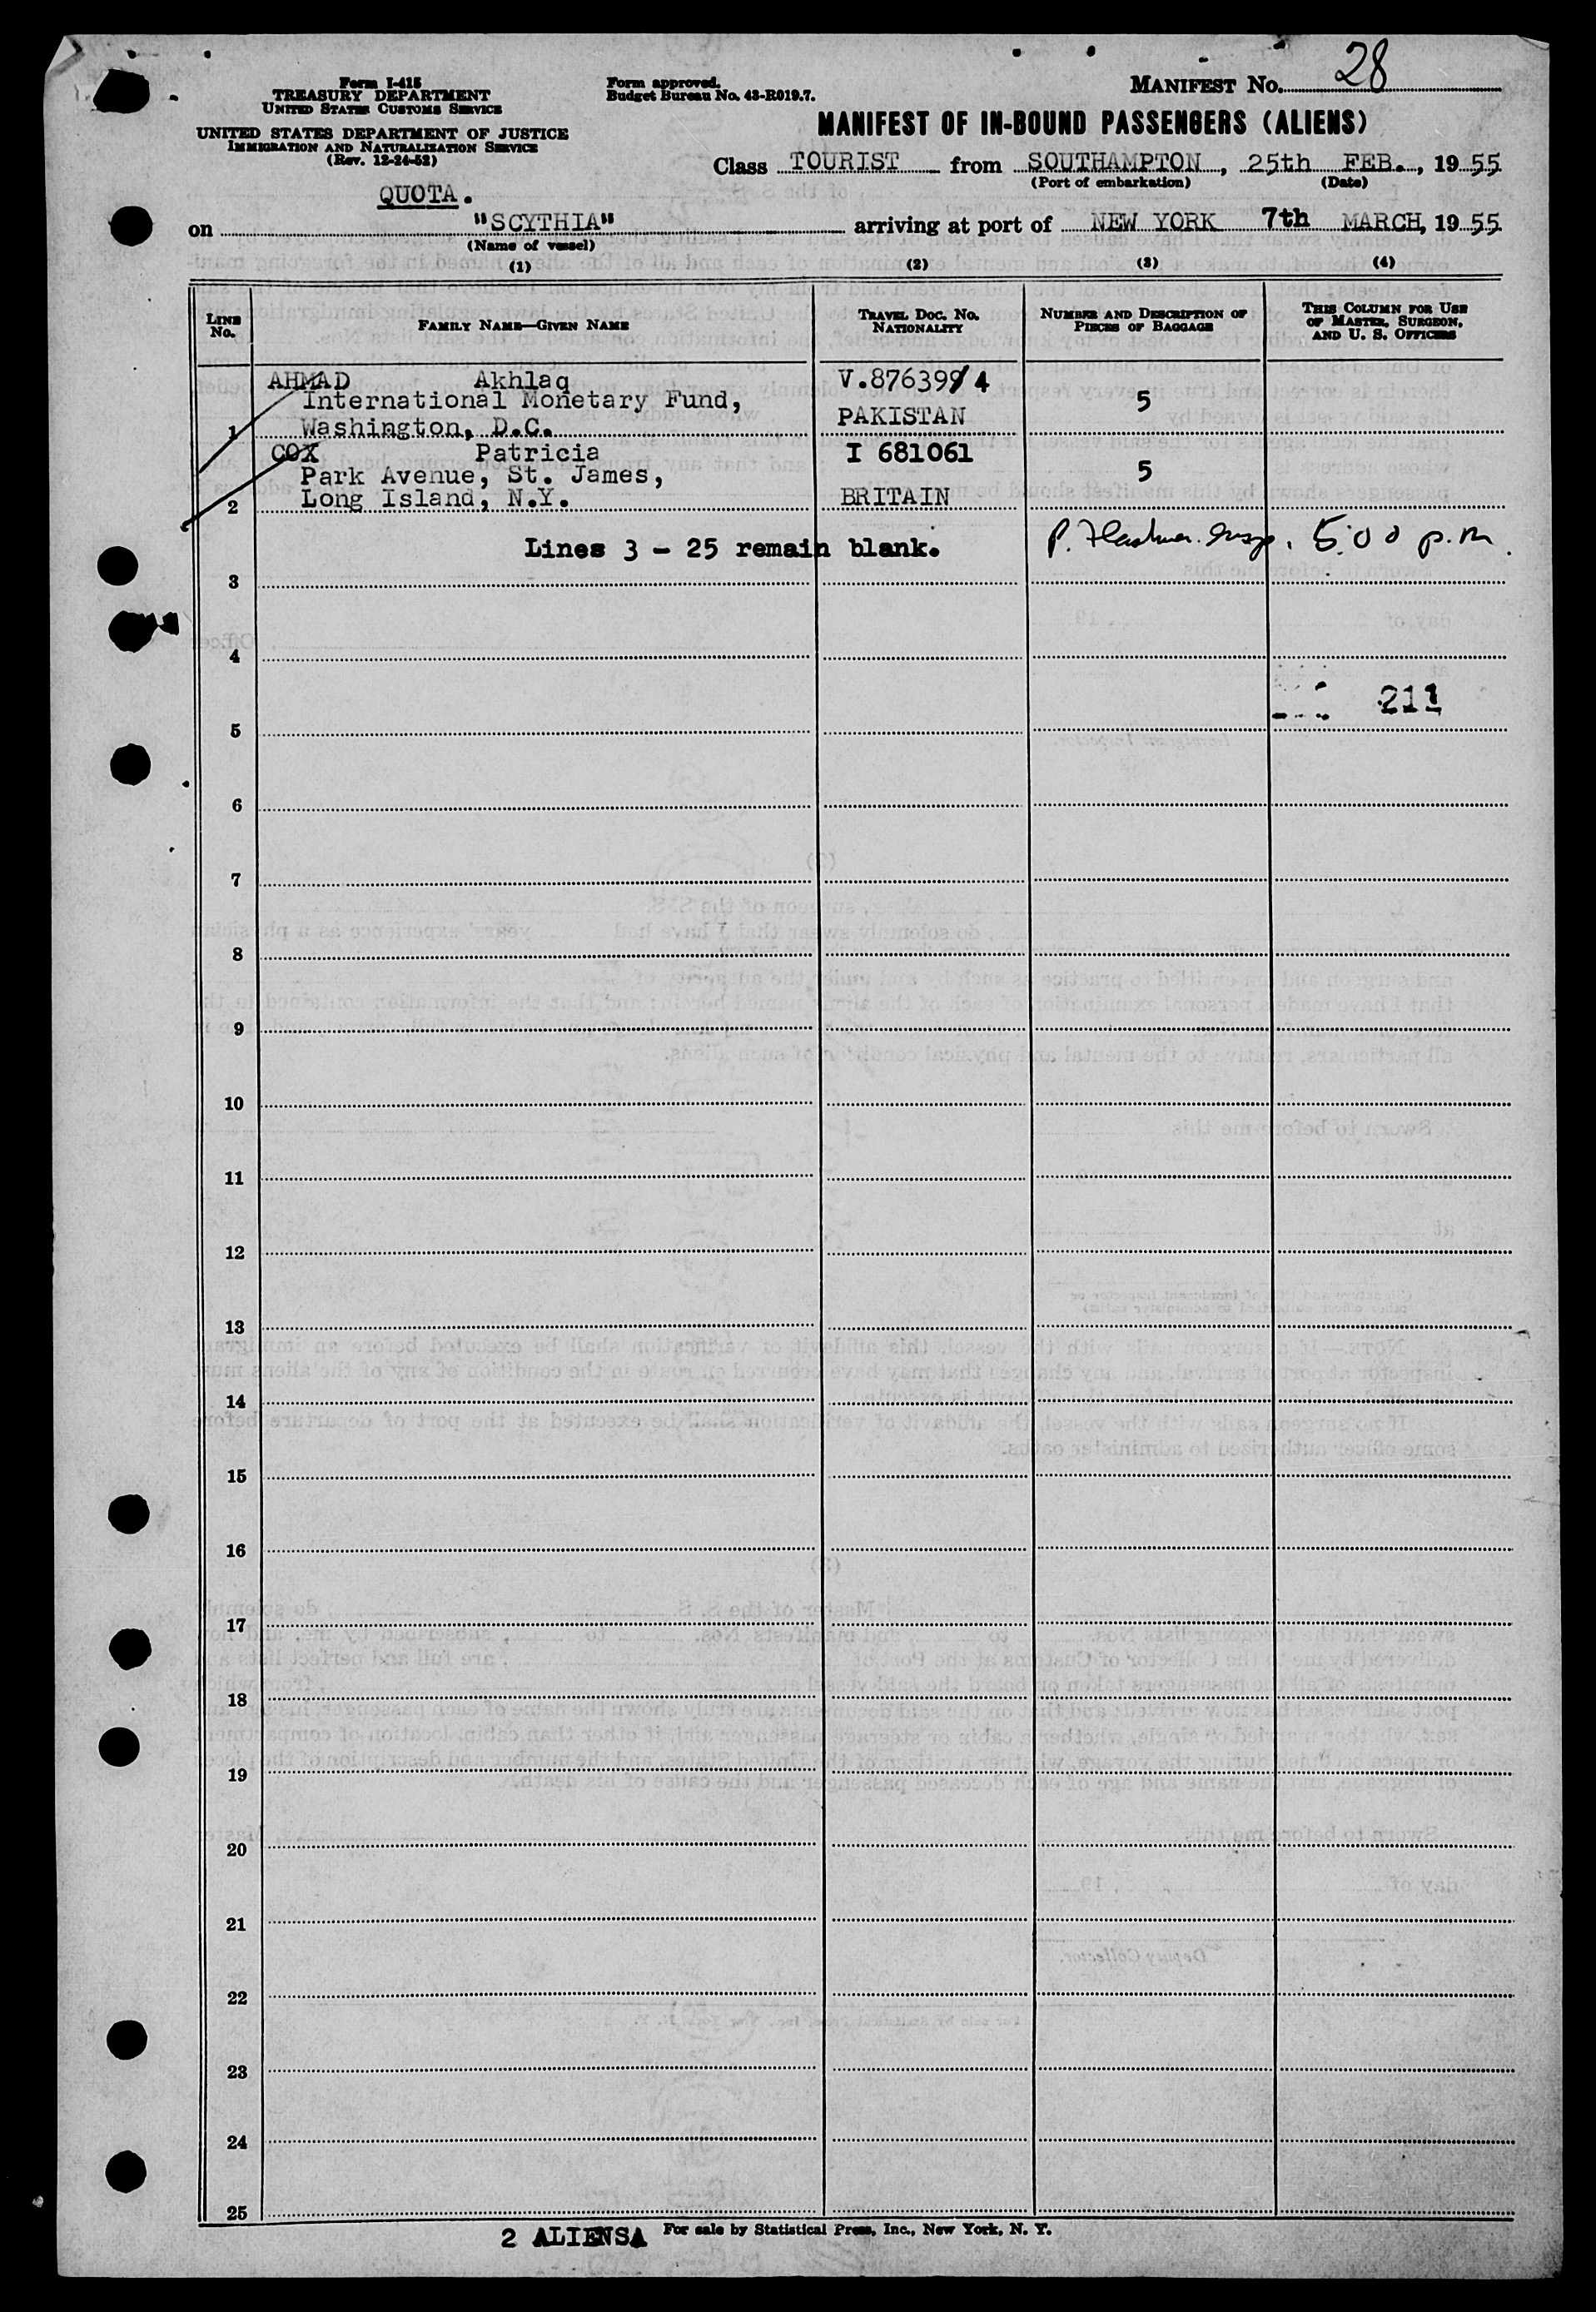 Form I-415
TREASURY DEPARTMENT
UNITED STATES CUSTOMS SERVICE
UNITED STATES DEPARTMENT OF JUSTICE
IMMIGRATION AND NATURALIZATION SERVICE
(Rev. 12-24-52)
Form approved.
Budget Bureau No. 43-R019.7.
MANIFEST No. 28
MANIFEST OF IN-BOUND PASSENGERS (ALIENS)
Class TOURIST from SOUTHAMPTON, 25th FEB., 1955
(Port of embarkation) (Date)
QUOTA.
on "SCYTHIA" arriving at port of NEW YORK 7th MARCH, 1955
(Name of vessel)
(1) (2) (3) (4)
LINE No. FAMILY NAME—GIVEN NAME TRAVEL DOC. NO. NATIONALITY NUMBER AND DESCRIPTION OF PIECES OF BAGGAGE THIS COLUMN FOR USE OF MASTER, SURGEON, AND U. S. OFFICERS
AHMAD Akhlaq V.876399/4
International Monetary Fund, 5
1 Washington, D.C. PAKISTAN
COX Patricia I 681061
Park Avenue, St. James, 5
2 Long Island, N.Y. BRITAIN
Lines 3 - 25 remain blank. 5:00 p.m.
3
4
211
5
6
7
8
9
10
11
12
13
14
15
16
17
18
19
20
21
22
23
24
25
2 ALIENSA For sale by Statistical Press, Inc., New York, N. Y.